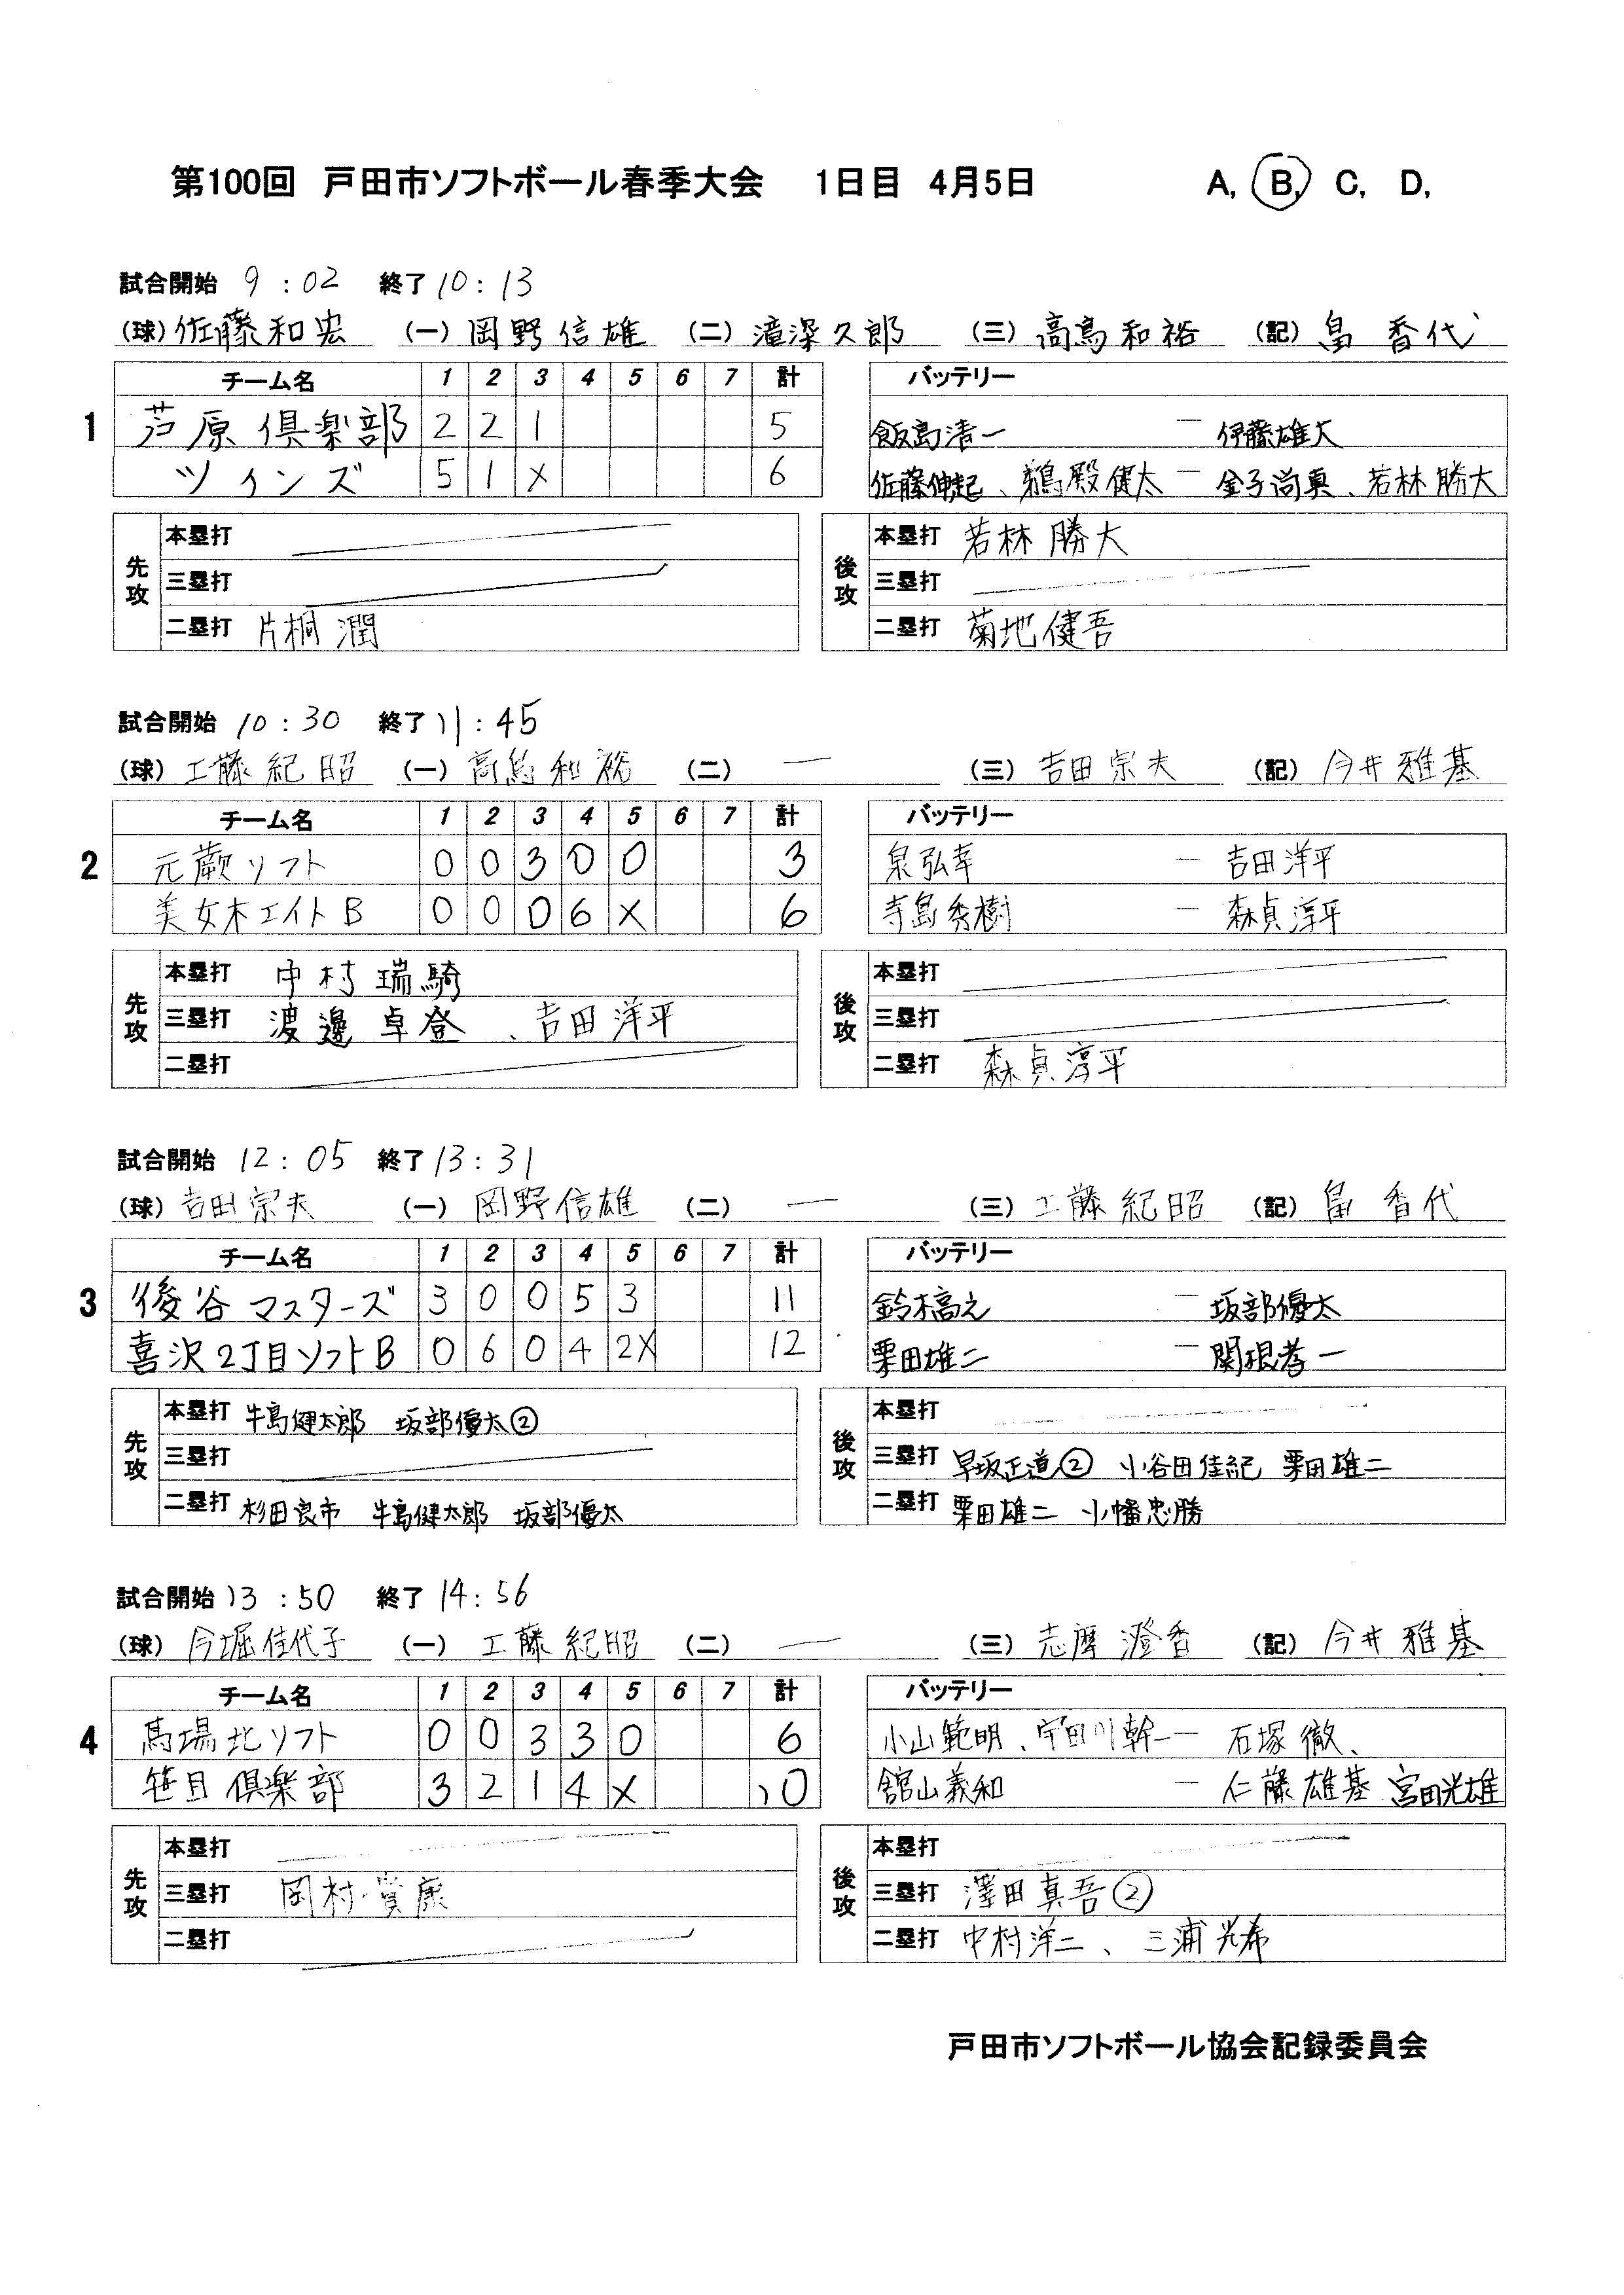 第100回 戸田市ソフトボール春季大会 1日目 4月5日 A, B, C, D,
試合開始 9:02 終了 10:13
(球) 佐藤和宏 (一) 岡野信雄 (二) 滝深久郎 (三) 高島和裕 (記) 畠 香代
チーム名 1 2 3 4 5 6 7 計 バッテリー
1 芦原倶楽部 2 2 1 5 飯島清一 ー 伊藤雄大
ツインズ 5 1 X 6 佐藤伸起、鵜殿健太 ー 金子尚真、若林勝大
先攻 本塁打 後攻 本塁打 若林勝大
三塁打 三塁打
二塁打 片桐潤 二塁打 菊地健吾
試合開始 10:30 終了 11:45
(球) 工藤紀昭 (一) 高島和裕 (二) ー (三) 吉田宗夫 (記) 今井雅基
チーム名 1 2 3 4 5 6 7 計 バッテリー
2 元蕨ソフト 0 0 3 0 0 3 泉弘幸 ー 吉田洋平
美女木エイトB 0 0 0 6 X 6 寺島秀樹 ー 森貞淳平
先攻 本塁打 中村瑞騎 後攻 本塁打
三塁打 渡邊卓登、吉田洋平 三塁打
二塁打 二塁打 森貞淳平
試合開始 12:05 終了 13:31
(球) 吉田宗夫 (一) 岡野信雄 (二) ー (三) 工藤紀昭 (記) 畠 香代
チーム名 1 2 3 4 5 6 7 計 バッテリー
3 後谷マスターズ 3 0 0 5 3 11 鈴木高之 ー 坂部優太
喜沢2丁目ソフトB 0 6 0 4 2X 12 栗田雄二 ー 関根孝一
先攻 本塁打 牛島健太郎 坂部優太② 後攻 本塁打
三塁打 三塁打 早坂正道② 小谷田佳紀 栗田雄二
二塁打 杉田良市 牛島健太郎 坂部優太 二塁打 栗田雄二 小幡忠勝
試合開始 13:50 終了 14:56
(球) 今堀佳代子 (一) 工藤紀昭 (二) ー (三) 志摩澄香 (記) 今井雅基
チーム名 1 2 3 4 5 6 7 計 バッテリー
4 馬場北ソフト 0 0 3 3 0 6 小山範明、宇田川幹一 ー 石塚徹、
笹目倶楽部 3 2 1 4 X 10 舘山義和 ー 仁藤雄基 宮田光雄
先攻 本塁打 後攻 本塁打
三塁打 岡村 康 三塁打 澤田真吾②
二塁打 二塁打 中村洋二、三浦光希
戸田市ソフトボール協会記録委員会